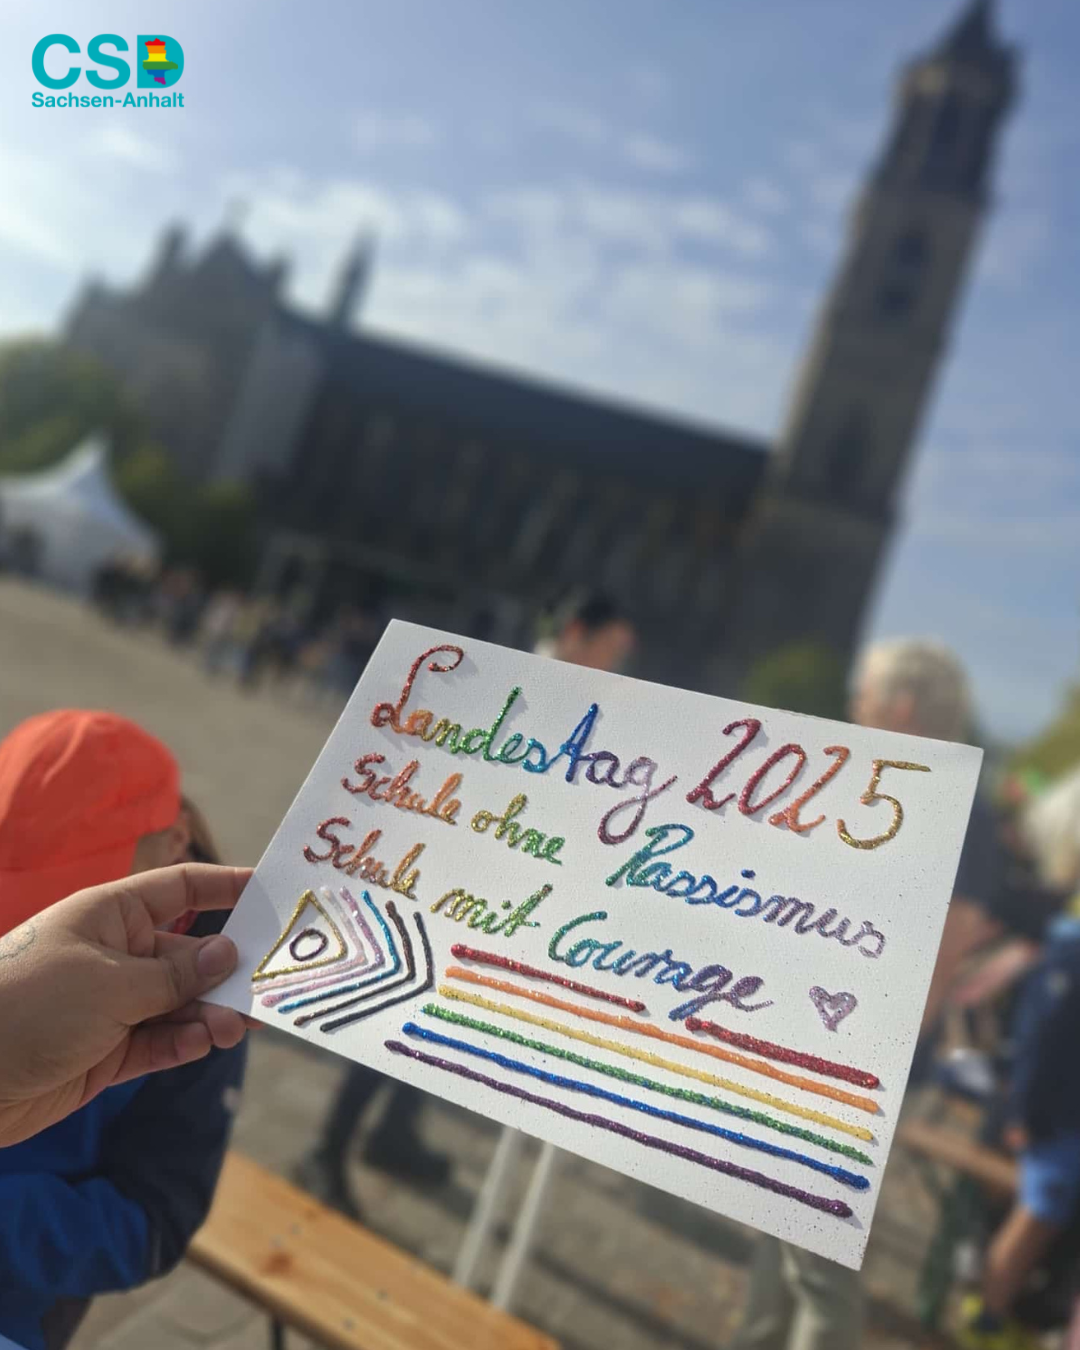 CSD
Sachsen-Anhalt
Landestag 2025
Schule ohne Rassismus
Schule mit Courage